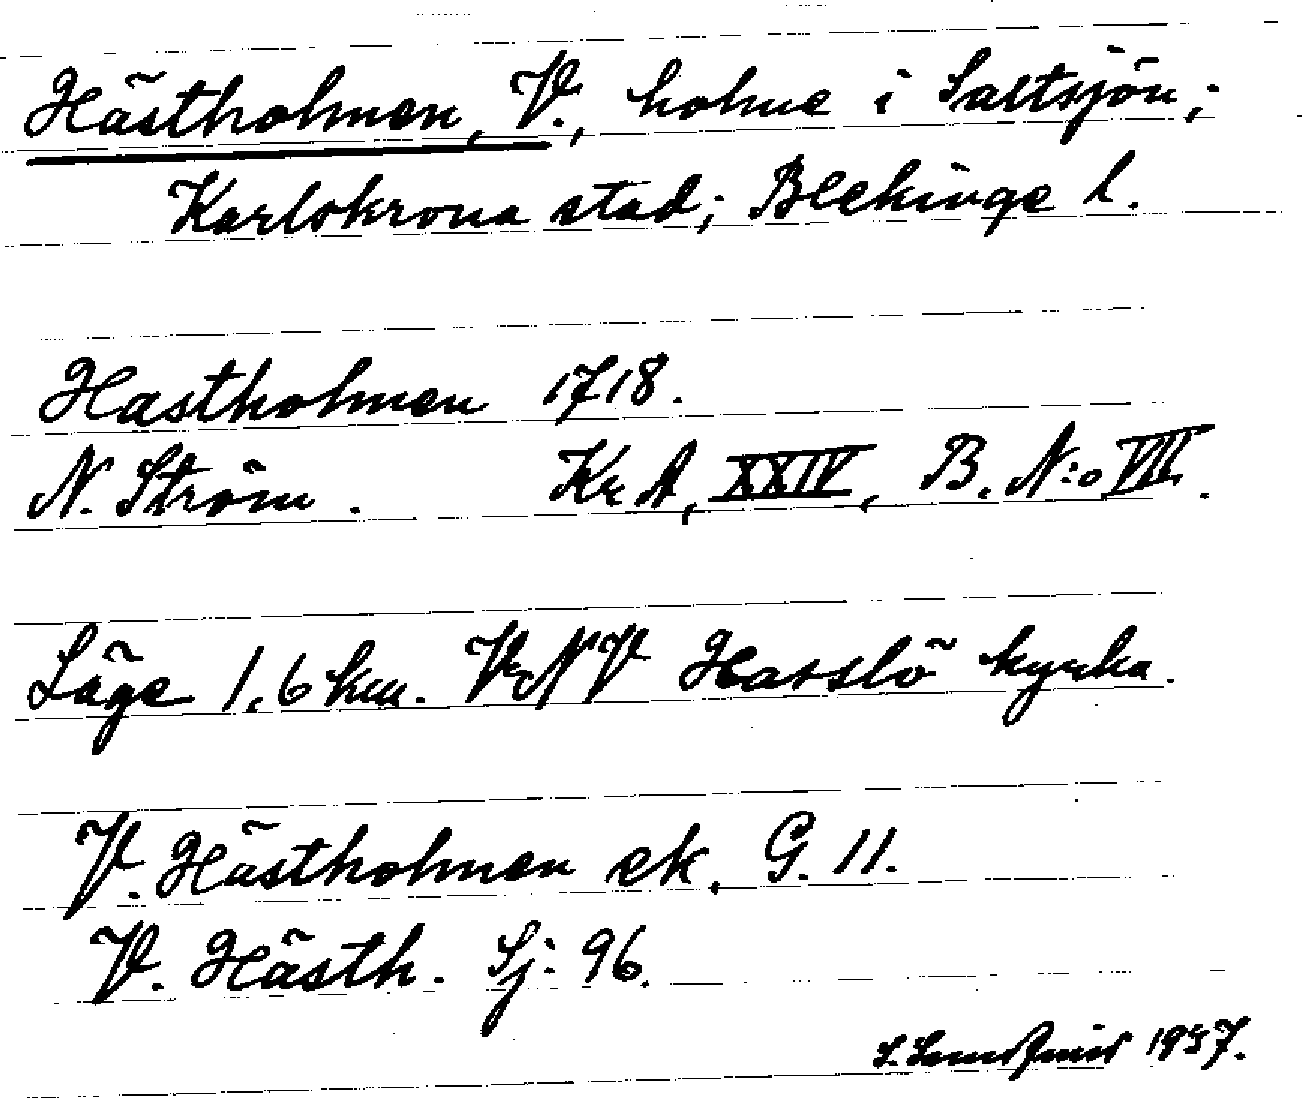 Hästholmen, V., holme i Saltsjön;
Karlskrona stad; Blekinge l.
Hastholmen 1718.
N. Ström. Kr A, XXIV, B. N:o VII.
Läge 1,6 km. VNV Hasslö kyrka.
V. Hästholmen ek. G. 11.
V. Hästh. Sj: 96.
S. 1957.